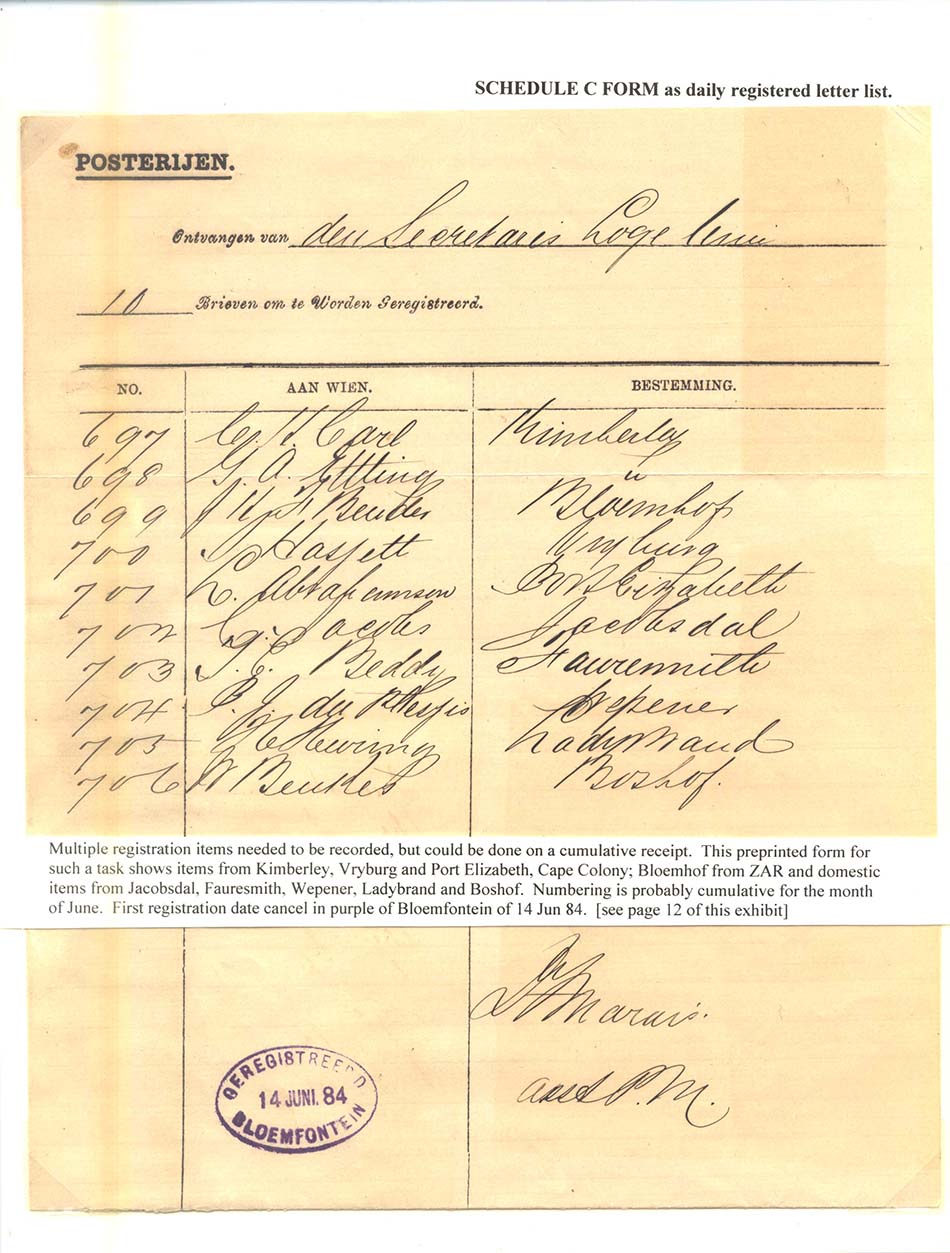 SCHEDULE C FORM as daily registered letter list.
POSTERIJEN.
Ontvangen van den Secretaris Loge
10 Brieven om te Worden Geregistreerd.
NO. AAN WIEN. BESTEMMING.
697 Carl Kimberley
698 G. A. Etting "
699 Beuder Bloemhof
700 Hassett Vryburg
701 L. Abrahamson Port Elizabeth
702 G. Jacobs Jacobsdal
703 T. E. Beddy Fauresmith
704 du Plessis Wepener
705 Ladybrand
706 Beukes Boshof.
Multiple registration items needed to be recorded, but could be done on a cumulative receipt. This preprinted form for
such a task shows items from Kimberley, Vryburg and Port Elizabeth, Cape Colony; Bloemhof from ZAR and domestic
items from Jacobsdal, Fauresmith, Wepener, Ladybrand and Boshof. Numbering is probably cumulative for the month
of June. First registration date cancel in purple of Bloemfontein of 14 Jun 84. [see page 12 of this exhibit]
Marais.
asst P.M.
GEREGISTREERD
14 JUNI. 84
BLOEMFONTEIN